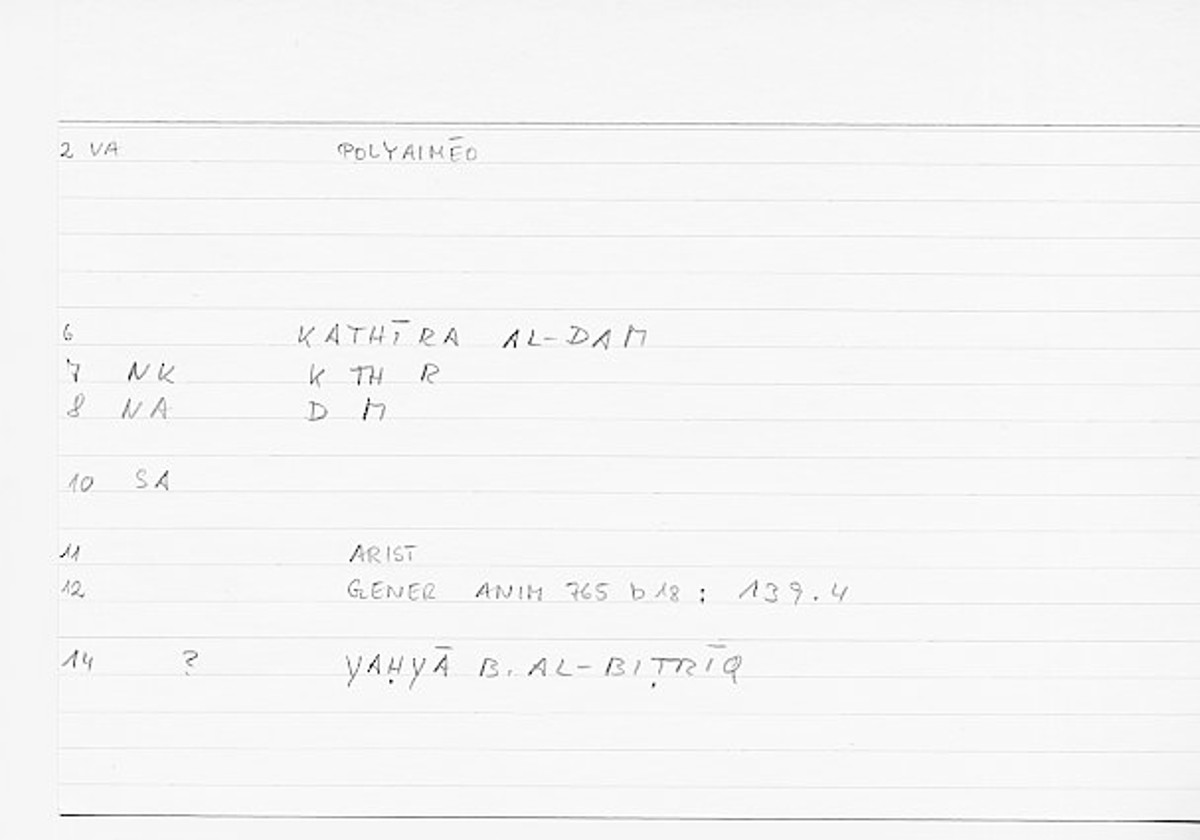 2 VA POLYAIMĒO
6 KATHĪRA AL-DAM
7 NK K TH R
8 NA D M
10 SA
11 ARIST
12 GENER ANIM 765 b 18 : 139.4
14 ? YAḤYĀ B. AL-BIṬRĪQ